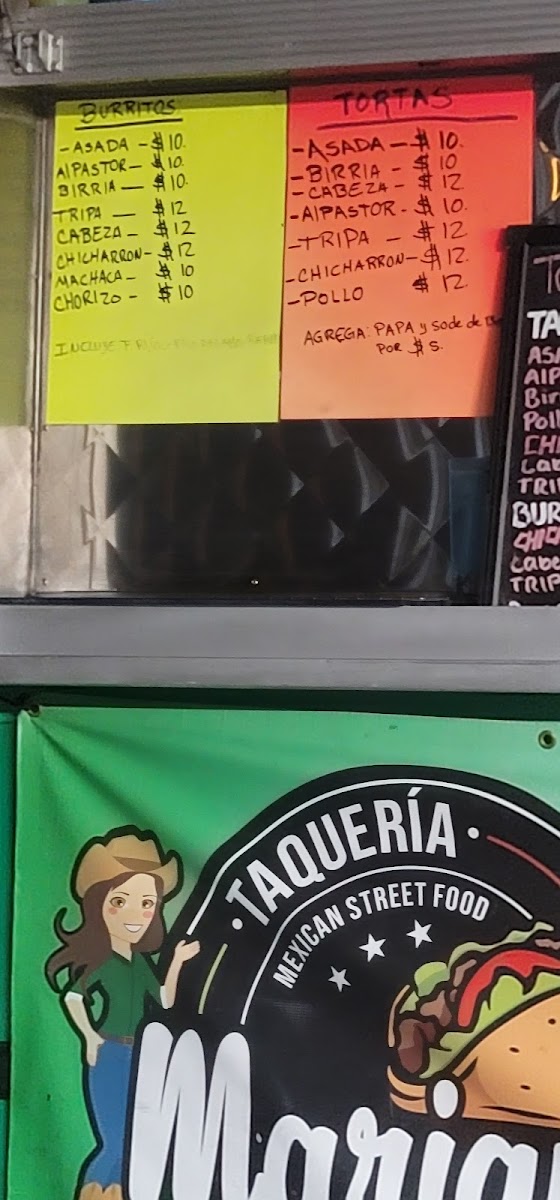 BURRITOS
-ASADA -$ 10.
AlPASTOR- $ 10.
BIRRIA - $ 10.
TRIPA — $ 12
CABEZA - $ 12
CHICHARRON- $ 12
MACHACA- $ 10
CHORIZO - $ 10
INCLUYE
TORTAS
-ASADA - $ 10.
-BIRRIA - $ 10
-CABEZA - $ 12
-AlPASTOR- $ 10.
-TRIPA - $ 12
-CHICHARRON- $ 12.
-POLLO $ 12
AGREGA: PAPA y sode de
POR $ 5.
TA
ASA
AlP
Bir
Poll
CHI
Cab
TRIP
BUR
CHIC
Cabe
TRIP
• TAQUERÍA •
MEXICAN STREET FOOD
Maria